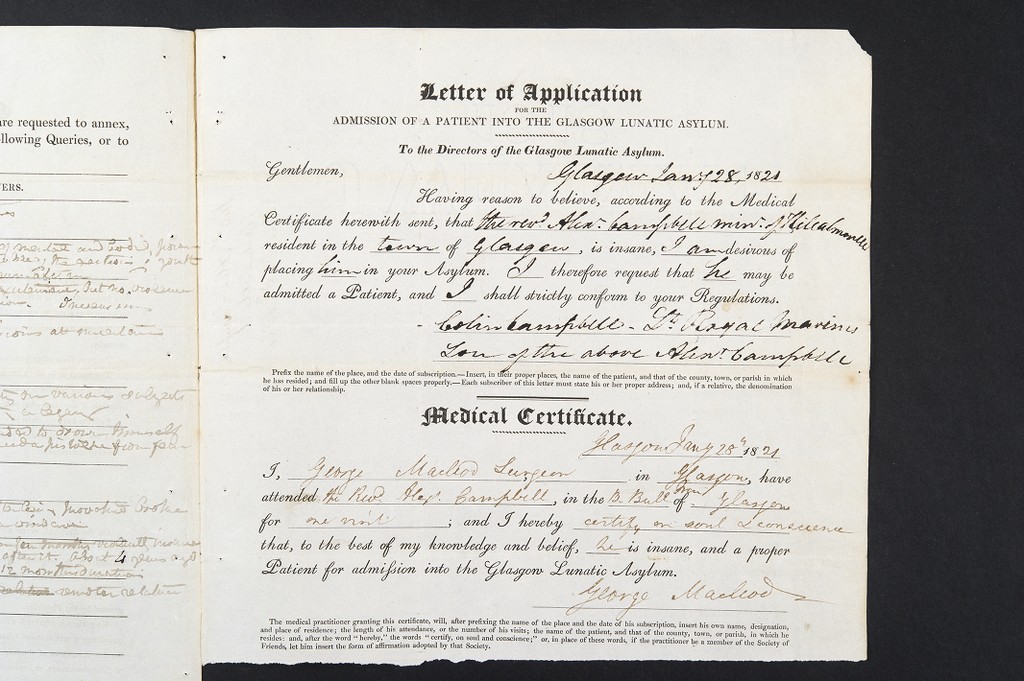 are requested to annex,
ollowing Queries, or to
ERS.
4
12 months duration
remoter relation
Letter of Application
FOR THE
ADMISSION OF A PATIENT INTO THE GLASGOW LUNATIC ASYLUM.
To the Directors of the Glasgow Lunatic Asylum.
Gentlemen,
Glasgow Jany 28, 1821
Having reason to believe, according to the Medical
Certificate herewith sent, that the revd. Alexr. Campbell minr. of Kilcalmonell
resident in the town of Glasgow, is insane, I am desirous of
placing him in your Asylum. I therefore request that he may be
admitted a Patient, and I shall strictly conform to your Regulations.
- Colin Campbell - Lt. Royal Marines
Son of the above Alexr. Campbell
Prefix the name of the place, and the date of subscription.—Insert, in their proper places, the name of the patient, and that of the county, town, or parish in which
he has resided; and fill up the other blank spaces properly.—Each subscriber of this letter must state his or her proper address; and, if a relative, the denomination
of his or her relationship.
Medical Certificate.
Glasgow Jany 28th 1821
I, George Macleod Surgeon in Glasgow, have
attended the Revd. Alexr. Campbell, in the B. Bull Inn of Glasgow
for one visit; and I hereby certify on soul & conscience
that, to the best of my knowledge and belief, he is insane, and a proper
Patient for admission into the Glasgow Lunatic Asylum.
George Macleod
The medical practitioner granting this certificate, will, after prefixing the name of the place and the date of his subscription, insert his own name, designation,
and place of residence; the length of his attendance, or the number of his visits; the name of the patient, and that of the county, town, or parish, in which he
resides: and, after the word "hereby," the words "certify, on soul and conscience;" or, in place of these words, if the practitioner be a member of the Society of
Friends, let him insert the form of affirmation adopted by that Society.